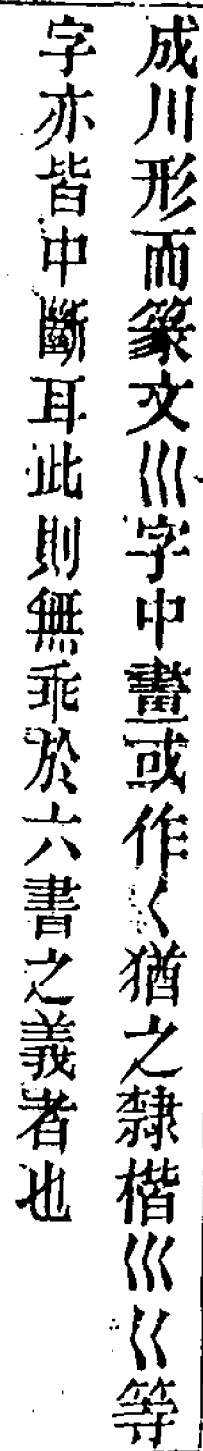 成川形而篆文巛字中畫或作𡿨猶之隸楷巛巜等
字亦皆中斷耳此則無乖於六書之義者也